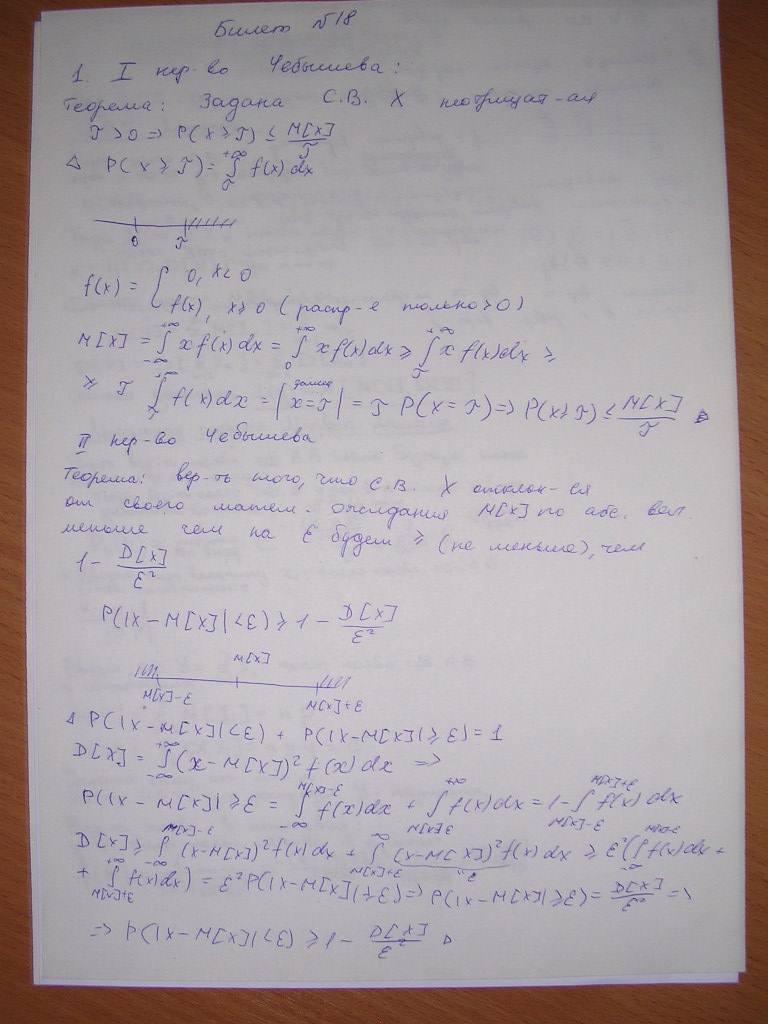 Билет №18
1. I нер-во Чебышева:
Теорема: Задана С.В. X неотрицат-ая
T > 0 => P(X ≥ T) ≤ M[X]/T
△ P(X ≥ T) = ∫_T^{+∞} f(x)dx
0 T
f(x) = { 0, x < 0
f(x), x ≥ 0 (распр-е только > 0)
M[X] = ∫_{-∞}^{+∞} x f(x)dx = ∫_0^{+∞} x f(x)dx ≥ ∫_T^{+∞} x f(x)dx ≥
≥ T ∫_T^{+∞} f(x)dx = | x=T | = T P(X = T) => P(X ≥ T) ≤ M[X]/T ▷
II нер-во Чебышева
Теорема: вер-ть того, что С.В. X отклон-ся
от своего матем. ожидания M[X] по абс. вел.
меньше чем на ε будет ≥ (не меньше), чем
1 - D[X]/ε²
P(|X - M[X]| < ε) ≥ 1 - D[X]/ε²
M[X]
M[X]-ε M[X]+ε
△ P(|X - M[X]| < ε) + P(|X - M[X]| ≥ ε) = 1
D[X] = ∫_{-∞}^{+∞} (x - M[X])² f(x)dx =>
P(|X - M[X]| ≥ ε = ∫_{-∞}^{M[X]-ε} f(x)dx + ∫_{M[X]+ε}^{+∞} f(x)dx = 1 - ∫_{M[X]-ε}^{M[X]+ε} f(x)dx
D[X] ≥ ∫_{-∞}^{M[X]-ε} (x-M[X])² f(x)dx + ∫_{M[X]+ε}^{∞} (x-M[X])² f(x)dx ≥ ε² (∫_{-∞}^{M[X]-ε} f(x)dx +
+ ∫_{M[X]+ε}^{+∞} f(x)dx) = ε² P(|X - M[X]| ≥ ε) => P(|X - M[X]| ≥ ε) = D[X]/ε² =>
=> P(|X - M[X]| < ε) ≥ 1 - D[X]/ε² ▷